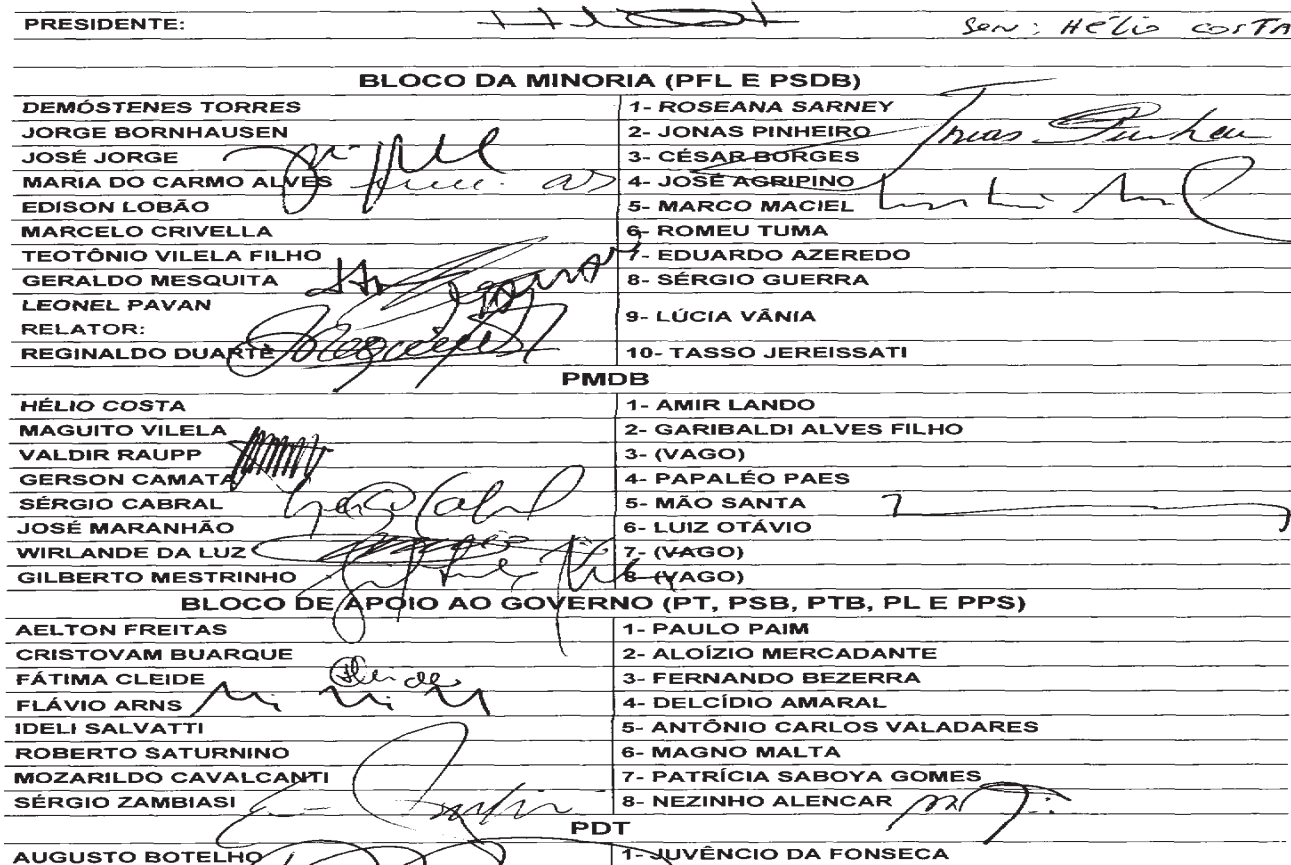 PRESIDENTE: Sen: Hélio Costa
BLOCO DA MINORIA (PFL E PSDB)
DEMÓSTENES TORRES 1- ROSEANA SARNEY
JORGE BORNHAUSEN 2- JONAS PINHEIRO Jonas Pinheiro
JOSÉ JORGE 3- CÉSAR BORGES
MARIA DO CARMO ALVES 4- JOSÉ AGRIPINO
EDISON LOBÃO 5- MARCO MACIEL
MARCELO CRIVELLA 6- ROMEU TUMA
TEOTÔNIO VILELA FILHO 7- EDUARDO AZEREDO
GERALDO MESQUITA 8- SÉRGIO GUERRA
LEONEL PAVAN
RELATOR: 9- LÚCIA VÂNIA
REGINALDO DUARTE 10- TASSO JEREISSATI
PMDB
HÉLIO COSTA 1- AMIR LANDO
MAGUITO VILELA 2- GARIBALDI ALVES FILHO
VALDIR RAUPP 3- (VAGO)
GERSON CAMATA 4- PAPALÉO PAES
SÉRGIO CABRAL Sérgio Cabral 5- MÃO SANTA
JOSÉ MARANHÃO 6- LUIZ OTÁVIO
WIRLANDE DA LUZ 7- (VAGO)
GILBERTO MESTRINHO 8- (VAGO)
BLOCO DE APOIO AO GOVERNO (PT, PSB, PTB, PL E PPS)
AELTON FREITAS 1- PAULO PAIM
CRISTOVAM BUARQUE 2- ALOÍZIO MERCADANTE
FÁTIMA CLEIDE Cleide 3- FERNANDO BEZERRA
FLÁVIO ARNS 4- DELCÍDIO AMARAL
IDELI SALVATTI 5- ANTÔNIO CARLOS VALADARES
ROBERTO SATURNINO 6- MAGNO MALTA
MOZARILDO CAVALCANTI 7- PATRÍCIA SABOYA GOMES
SÉRGIO ZAMBIASI 8- NEZINHO ALENCAR
PDT
AUGUSTO BOTELHO 1- JUVÊNCIO DA FONSECA